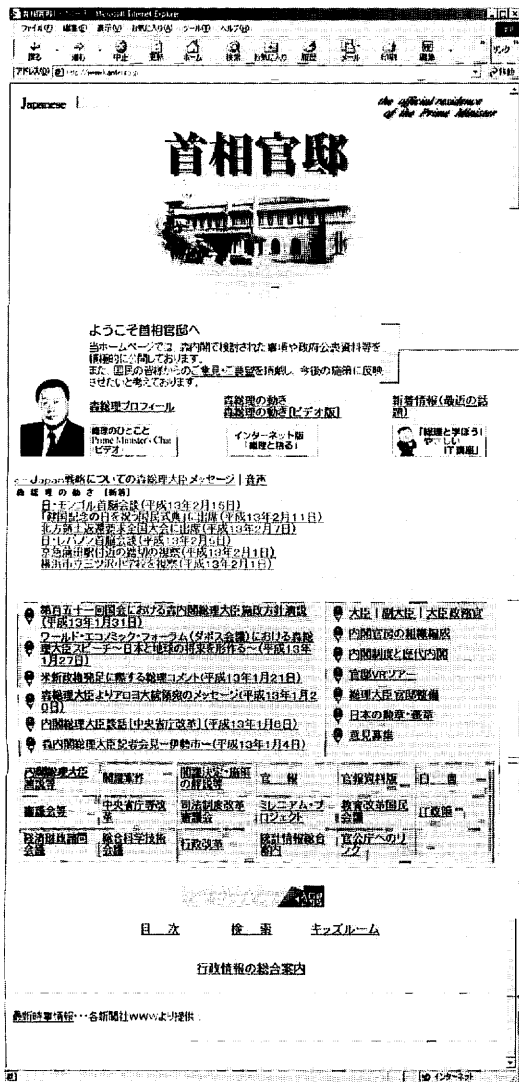 ファイル(F) 編集(E) 表示(V) お気に入り(A) ツール(T) ヘルプ(H)
戻る 進む 中止 更新 ホーム 検索 お気に入り 履歴 メール 印刷 編集 リンク
アドレス(D)
Japanese
the official residence
of the Prime Minister
首相官邸
ようこそ首相官邸へ
当ホームページでは、森内閣で検討された事項や政府公表資料等を
積極的に公開しております。
また、国民の皆様からのご意見・ご要望を頂戴し、今後の施策に反映
させたいと考えております。
森総理プロフィール
森総理の動き
森総理の動き[ビデオ版]
新着情報(最近の話
題)
総理のひとこと
Prime Minister's Chat
ビデオ
インターネット版
「総理と語る」
「総理と学ぼう!
やさしい
IT講座」
e-Japan戦略についての森総理大臣メッセージ | 音声
森総理の動き [新着]
日・モンゴル首脳会談(平成13年2月15日)
「建国記念の日を祝う国民式典」に出席(平成13年2月11日)
北方領土返還要求全国大会に出席(平成13年2月7日)
日・レバノン首脳会談(平成13年2月5日)
京急蒲田駅付近の踏切の視察(平成13年2月1日)
横浜市立三ツ沢小学校を視察(平成13年2月1日)
第百五十一回国会における森内閣総理大臣施政方針演説
(平成13年1月31日)
ワールド・エコノミック・フォーラム(ダボス会議)における森総
理大臣スピーチ~日本と地球の将来を形作る~(平成13年
1月27日)
米新政権発足に際する総理コメント(平成13年1月21日)
森総理大臣よりアロヨ大統領宛のメッセージ(平成13年1月2
0日)
内閣総理大臣談話[中央省庁改革](平成13年1月6日)
森内閣総理大臣記者会見-伊勢市-(平成13年1月4日)
大臣 | 副大臣 | 大臣政務官
内閣官房の組織編成
内閣制度と歴代内閣
官邸VRツアー
総理大臣官邸整備
日本の勲章・褒章
意見募集
内閣総理大臣
演説等
閣議案件
閣議決定・施策
の解説等
官 報
官報資料版
白 書
審議会等
中央省庁等改
革
司法制度改革
審議会
ミレニアム・プ
ロジェクト
教育改革国民
会議
IT政策
経済財政諮問
会議
総合科学技術
会議
行政改革
統計情報総合
案内
官公庁へのリ
ンク
目 次 検 索 キッズルーム
行政情報の総合案内
最新時事情報・・・各新聞社WWWより提供
インターネット